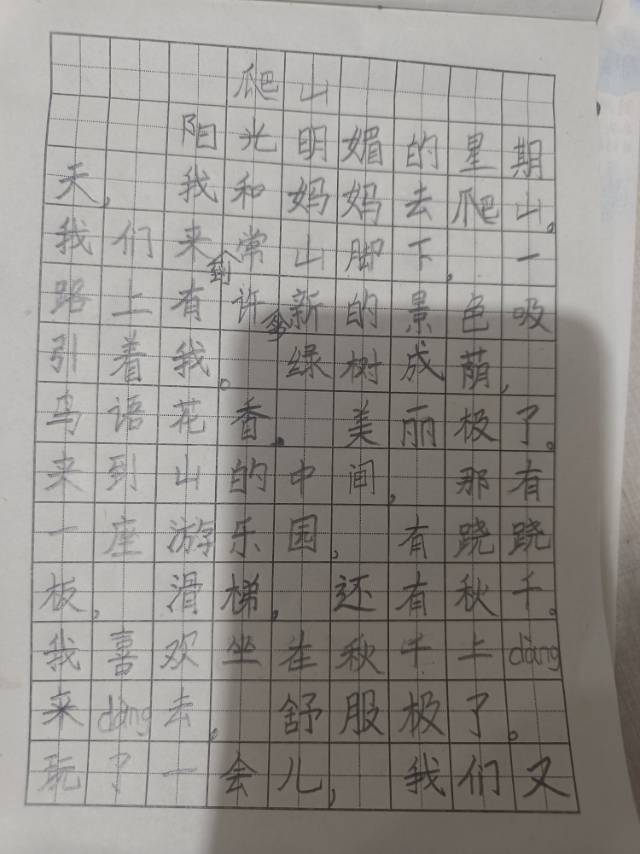 爬山
阳光明媚的星期
天,我和妈妈去爬山。
我们来到常山脚下,一
路上有许多新的景色吸
引着我。绿树成荫,
鸟语花香。美丽极了。
来到山的中间,那有
一座游乐园,有跷跷
板,滑梯,还有秋千。
我喜欢坐在秋千上dàng
来dàng去。舒服极了。
玩了一会儿,我们又